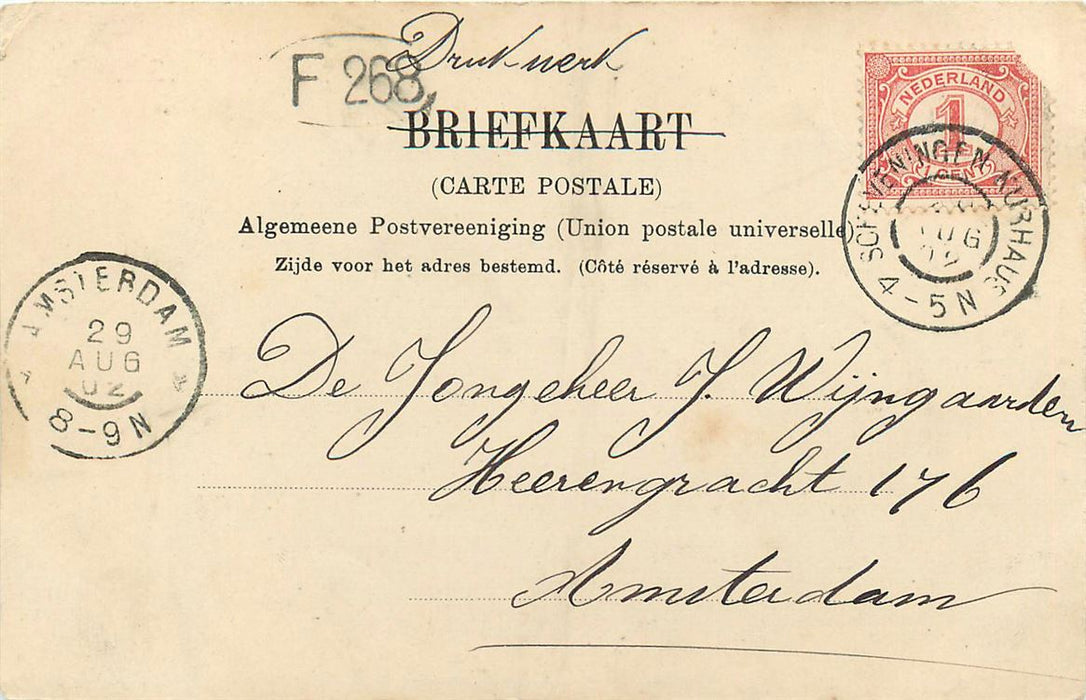 Drukwerk
F 268
BRIEFKAART
(CARTE POSTALE)
Algemeene Postvereeniging (Union postale universelle)
Zijde voor het adres bestemd. (Côté réservé à l'adresse).
NEDERLAND
1
1 CENT
SCHEVENINGEN KURHAUS
AUG
02
4-5N
AMSTERDAM
29
AUG
02
8-9N
De Jongeheer J. Wijngaarden
Heerengracht 176
Amsterdam